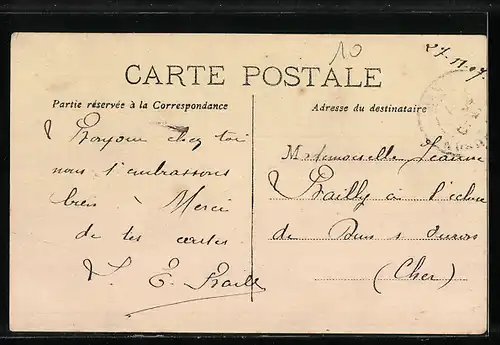 10
27-11-07
CARTE POSTALE
Partie réservée à la Correspondance
Adresse du destinataire
Bonjour chez toi
nous t'embrassons
bien à Merci
de tes cartes
E.
Mademoiselle Jeanne
à l'écluse
de
(Cher)